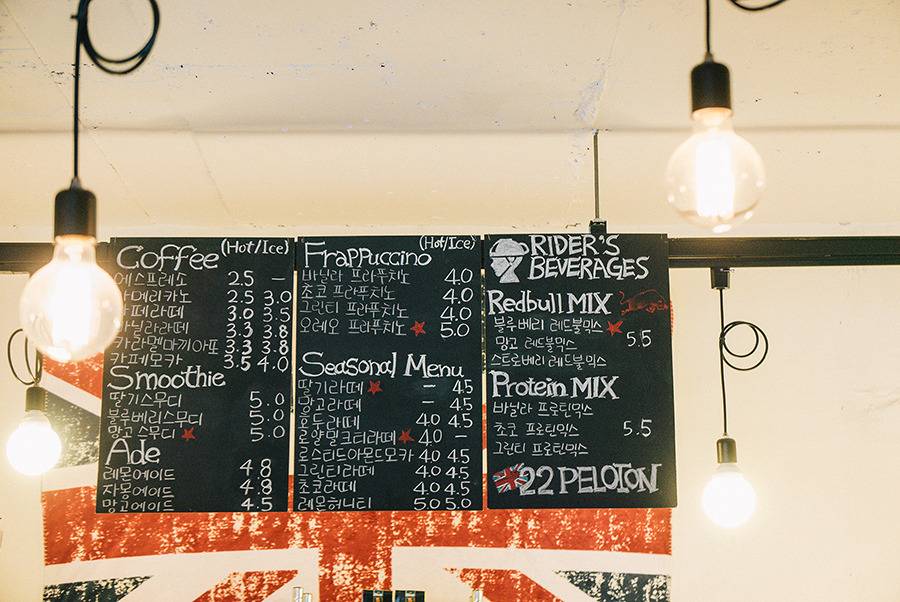 Coffee (Hot/Ice)
에스프레소 2.5 -
아메리카노 2.5 3.0
카페라떼 3.0 3.5
바닐라라떼 3.3 3.8
카라멜마키아또 3.3 3.8
카페모카 3.5 4.0
Smoothie
딸기스무디 5.0
블루베리스무디 5.0
망고스무디 5.0
Ade
레몬에이드 4.8
자몽에이드 4.8
망고에이드 4.5
Frappuccino (Hot/Ice)
바닐라 프라푸치노 4.0
초코 프라푸치노 4.0
그린티 프라푸치노 4.0
오레오 프라푸치노 5.0
Seasonal Menu
딸기라떼 - 4.5
망고라떼 - 4.5
호두라떼 4.0 4.5
로얄밀크티라떼 4.0 -
로스티드아몬드모카 4.0 4.5
그린티라떼 4.0 4.5
초코라떼 4.0 4.5
레몬허니티 5.0 5.0
RIDER'S
BEVERAGES
Redbull MIX
블루베리 레드불믹스
망고 레드불믹스 5.5
스트로베리 레드불믹스
Protein MIX
바닐라 프로틴믹스
초코 프로틴믹스 5.5
그린티 프로틴믹스
22 PELOTON